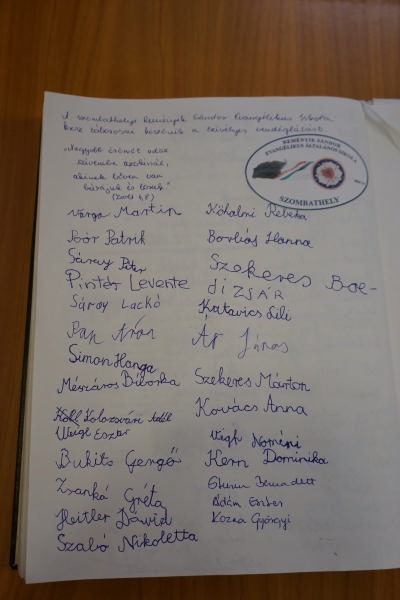 A szombathelyi Reményik Sándor Evangélikus Iskola
kézilabdásai köszönik a szívélyes vendéglátást.
"Nagyobb örömöt adsz
szívembe azokénál,
akiknek bőven van
búzájuk és boruk"
(Zsolt 4,8)
REMÉNYIK SÁNDOR
EVANGÉLIKUS ÁLTALÁNOS ISKOLA
SZOMBATHELY
Varga Martin
Poór Patrik
Sáray Péter
Pintér Levente
Sáray Lackó
Pap Áron
Simon Hanga
Mészáros Bíborka
Kolozsvári Adél
Weigl Eszter
Bukits Gergő
Zsankó Gréta
Heitler Dávid
Szabó Nikoletta
Kőhalmi Rebeka
Borliás Hanna
Szekeres Boe-
dizsár
Katavics Lili
János
Szekeres Márton
Kovács Anna
Végh Noémi
Kern Dominika
Bernadett
Ádám Eszter
Kozma Gyöngyi